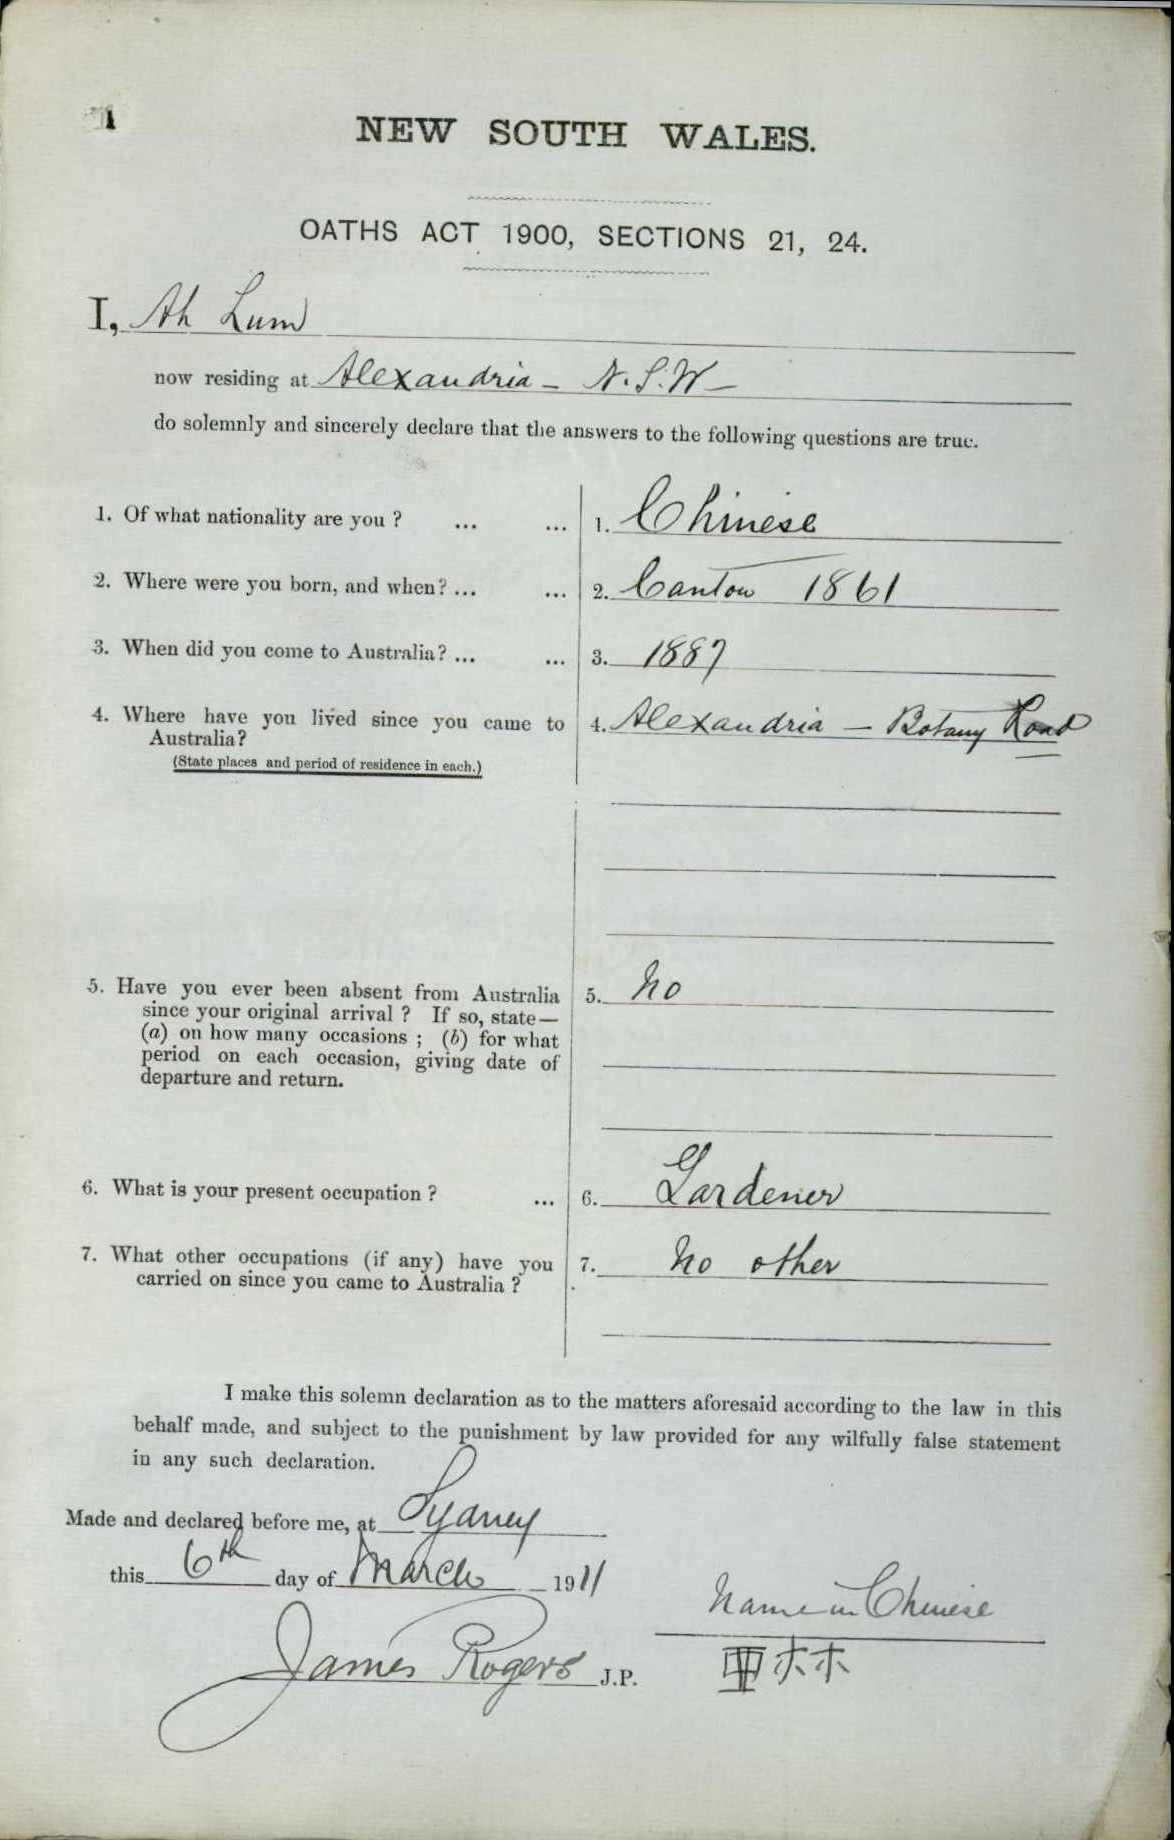 1
NEW SOUTH WALES.
OATHS ACT 1900, SECTIONS 21, 24.
I, Ah Lum
now residing at Alexandria - N.S.W -
do solemnly and sincerely declare that the answers to the following questions are true.
1. Of what nationality are you ? ... ... 1. Chinese
2. Where were you born, and when? ... ... 2. Canton 1861
3. When did you come to Australia? ... ... 3. 1887
4. Where have you lived since you came to 4. Alexandria - Botany Road
Australia?
(State places and period of residence in each.)
5. Have you ever been absent from Australia 5. No
since your original arrival ? If so, state—
(a) on how many occasions ; (b) for what
period on each occasion, giving date of
departure and return.
6. What is your present occupation ? ... 6. Gardener
7. What other occupations (if any) have you 7. No other
carried on since you came to Australia ?
I make this solemn declaration as to the matters aforesaid according to the law in this
behalf made, and subject to the punishment by law provided for any wilfully false statement
in any such declaration.
Made and declared before me, at Sydney
this 6th day of March 1911
Name in Chinese
James Rogers J.P.
亜林